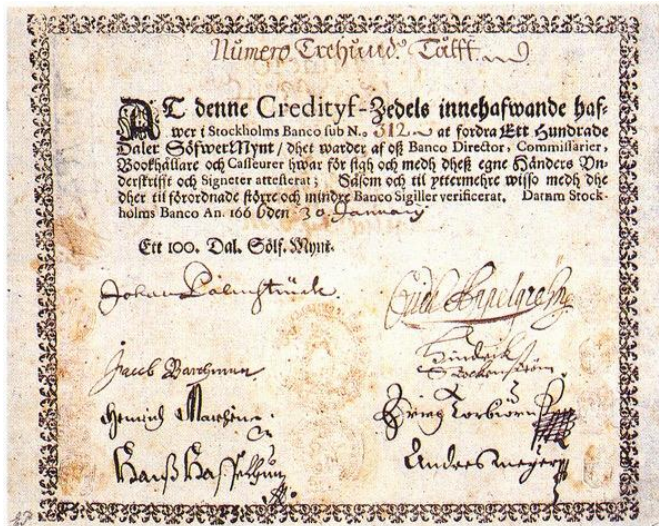 Numero Trehund. Tålff
AT denne Credityf-Zedels innehafwande haf-
wer i Stockholms Banco sub N.o 312 at fordra Ett Hundrade
Daler Söfwer Mynt / dhet warder af oß Banco Director, Commissarier,
Bookhållare och Casseurer hwar för sigh och medh dheß egne Händers Vn-
derskrifft och Signeter attesterat; Såsom och til yttermehre wisso medh dhe
dher til förordnade större och mindre Banco Sigiller verificerat. Datum Stock-
holms Banco An. 166 6 den 30 January
Ett 100. Dal. Sölf. Mynt.
Johan Palmstruck.
Jacob
Hindrich
Heinrich
Hanß
Anders meijer